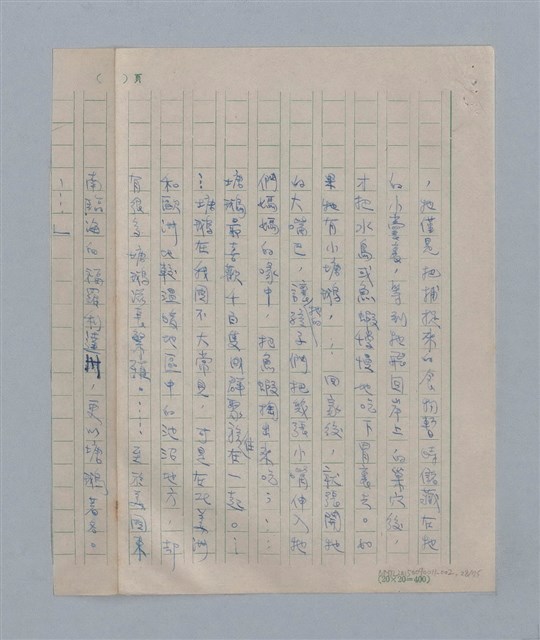 （　）頁
，牠僅是把捕捉來的食物暫時儲藏在牠
的小當裏，等到牠飛回岸上的巢穴後，
才把水鳥或魚蝦慢慢地吃下胃裏去。如
果牠有小塘鵝，回家後，就張開牠
的大嘴巴，讓牠孩子們把或強小嘴伸入牠
們媽媽的喙中，把魚蝦掏出來吃；……
塘鵝最喜歡千百隻成群聚族住在一起。…
…塘鵝在我國不大常見，可是在北美洲
和歐洲比較溫暖地區中的池沼地方，都
有很多塘鵝 。……至於美國東
南沿海的福羅利達州，更以塘鵝著名。
……」
(20×20=400)